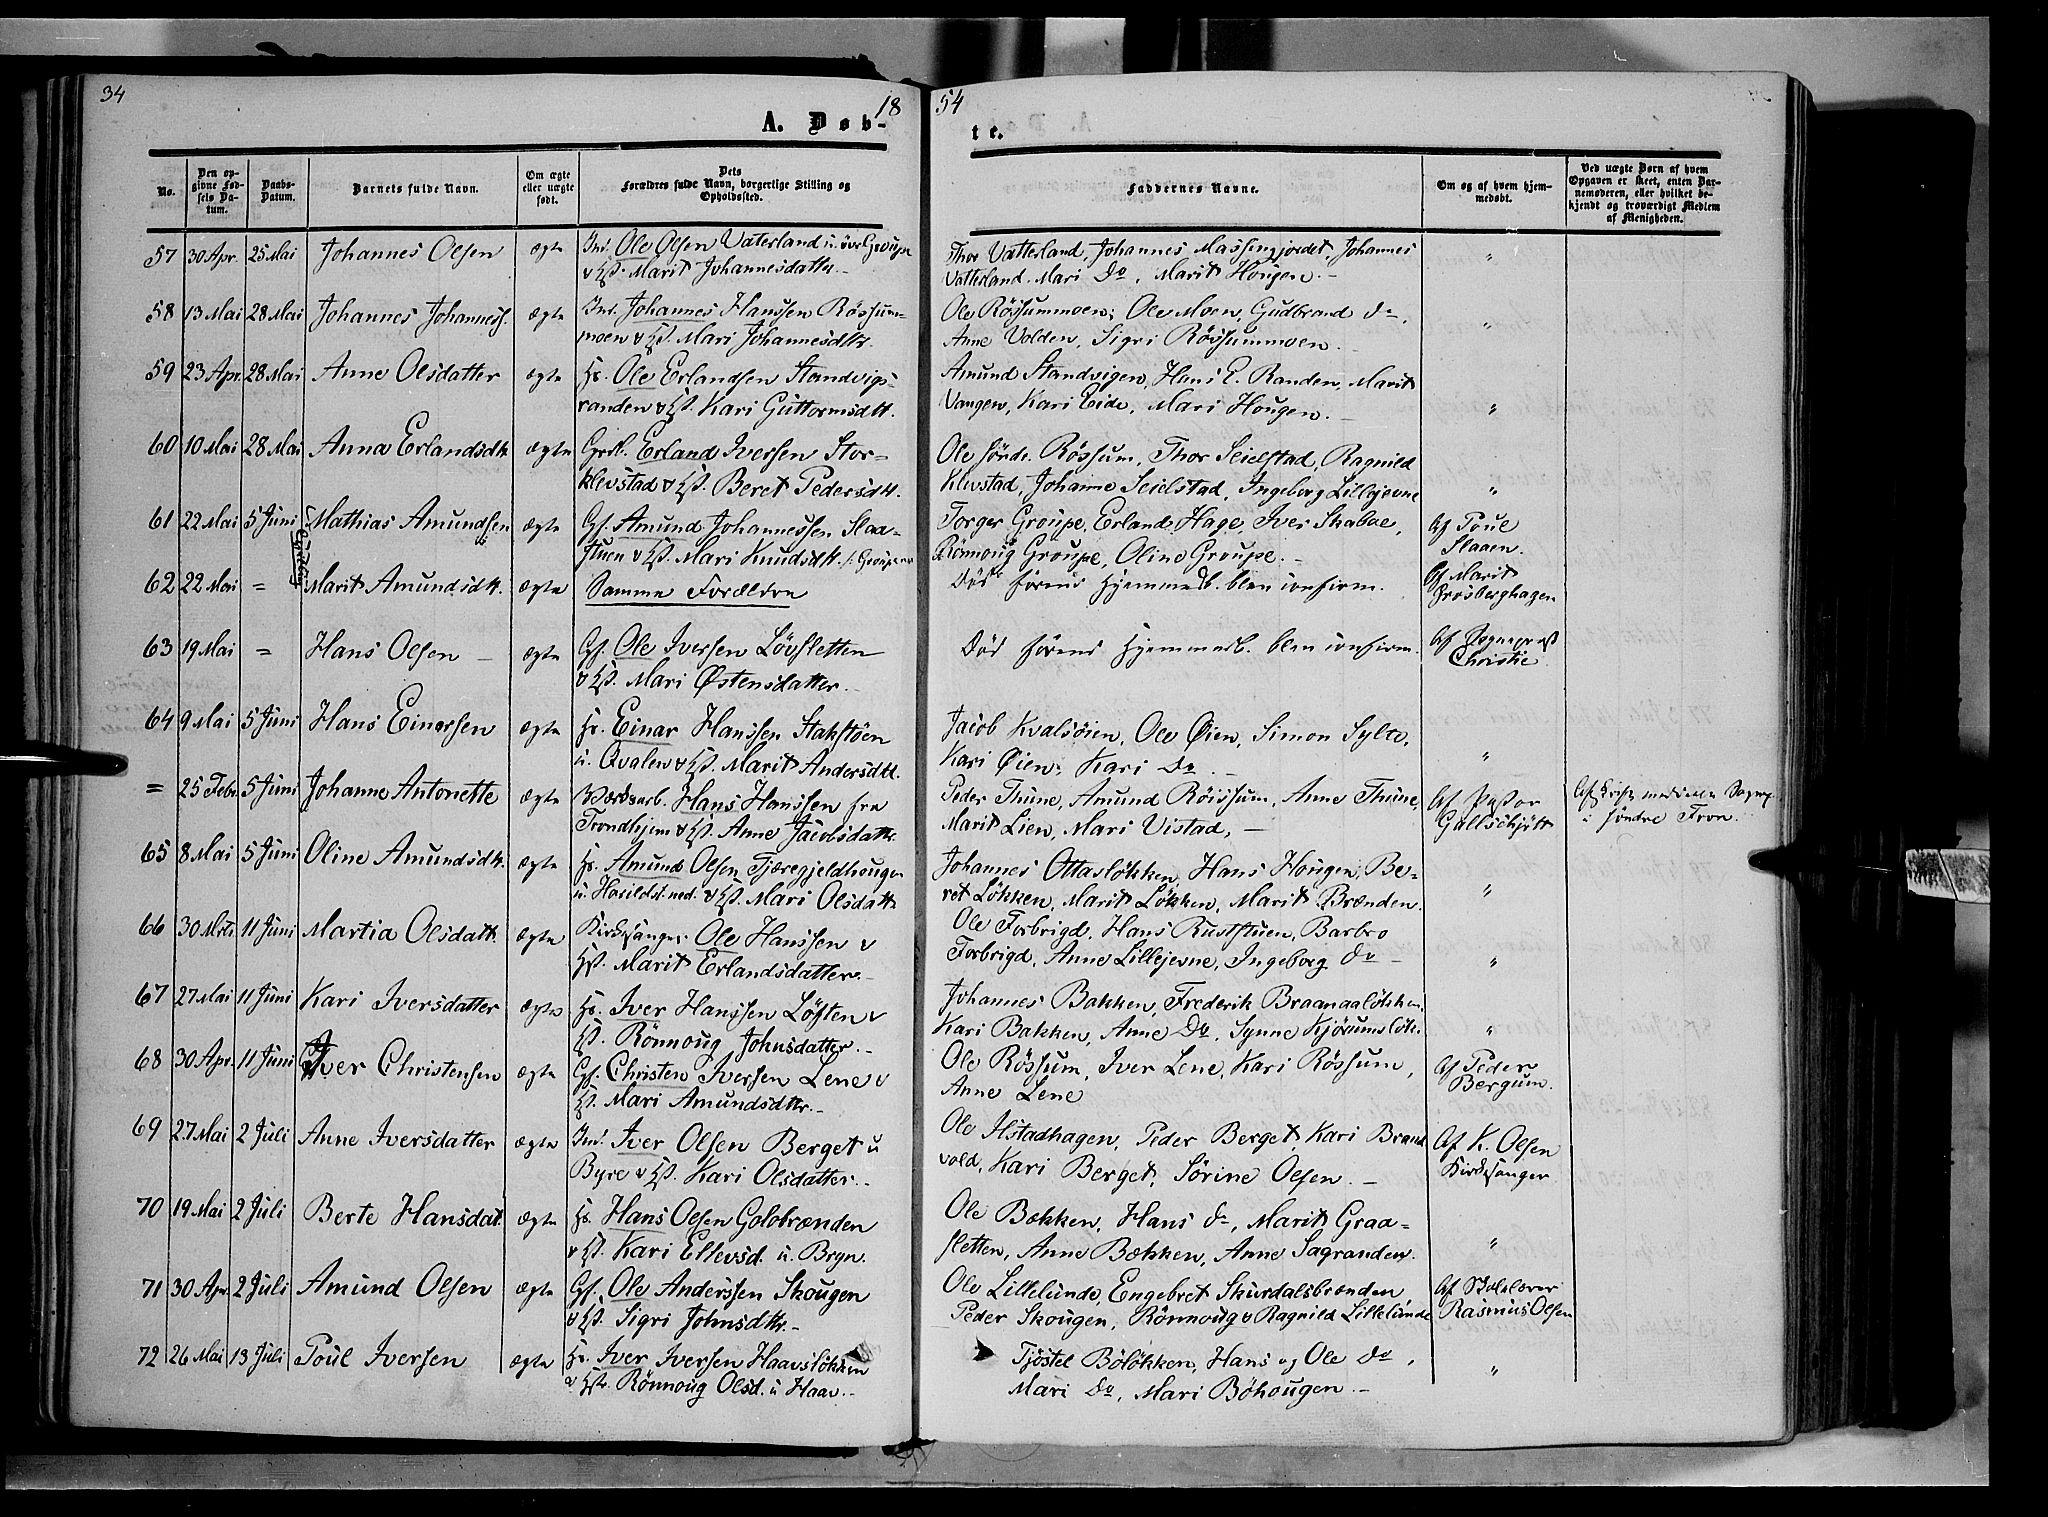 34
18
54
A. Døb-
te.
No.
Den op-
givne Fød-
sels Da-
tum.
Daabs-
Datum.
Barnets fulde Navn.
Om ægte
eller uægte
født.
Dets
Forældres fulde Navn, borgerlige Stilling og
Opholdssted.
Faddernes Navne.
Om og af hvem hjem-
medøbt.
Ved uægte Børn af hvem
Opgaven er skeet, enten Bar-
nemoderen, eller hvilket be-
kjendt og troværdigt Medlem
af Menigheden.
57 30 Apr. 25 Mai Johannes Olsen ægte Ind. Ole Olsen Vaterland u. övr Groupe
Marit Johannesdattr.
Thor Vatterland, Johannes Massingjordet, Johannes
Vatterland. Mari Do, Marit Hougen. "
58 13 Mai 28 Mai Johannes Johanness. ægte Ind. Johannes Hanssen Rössum-
moen Mari Johannesdtr.
Ole Rössummoen, Ole Moen, Gudbrand do,
Anne Volden, Sigri Rössummoen. "
59 23 Apr. 28 Mai Anne Olsdatter ægte Hs. Ole Erlandsen Standvigs-
randen Kari Guttormsdtt.
Amund Standvigen, Hans E. Randen, Marit
Vangen, Kari Eide, Mari Hougen. "
60 10 Mai 28 Mai Anna Erlandsdtt. ægte Grdl. Erland Iversen Stor-
klevstad Beret Pedersdtt.
Ole söndr. Rössum, Thor Seielstad, Ragnild
Klevstad, Johanne Seielstad, Ingeborg Lillejevne "
61 22 Mai 5 Juni Mathias Amundsen ægte Gf. Amund Johannessen Slaa-
stuen Mari Knudsdtt.
Torger Groupe, Erland Hage, Iver Skaboe,
Rönnoug Groupe, Oline Groupe.
Af Poul
Slaaen.
62 22 Mai = Marit Amundsdtt. ægte Samme Forældre
Död förend Hjemmedb. blev confirm.
Af Marit
Fröisberghagen
63 19 Mai = Hans Olsen ægte Gf. Ole Iversen Lövsletten
Mari Østensdatter.
Död förend Hjemmedb. blev confirm.
Af Sognepræst
Christie
64 9 Mai 5 Juni Hans Einersen ægte Hs. Einar Hanssen Stakstöen
u. Qvalen Marit Andersdtt.
Jacob Kvalsöien, Ole Øien, Simon Sylte,
Kari Øien, Kari Do. "
= 25 Febr. 5 Juni Johanne Antonette ægte Hans Hanssen fra
Trondhjem Anne Jacobsdattr.
Peder Thune, Amund Röissum, Anne Thune,
Marit Lien, Mari Vistad,
Af Pastor
Gallschjöt
i söndre Fron.
65 8 Mai 5 Juni Oline Amundsdtt. ægte Hs. Amund Olsen Tjæregjeldhougen
u. Harildst. ned. Mari Olsdattr.
Johannes Ottaslökken, Hans Hougen, Be-
ret Lökken, Marit Lökken, Marit Brænden. "
66 30 Mrts. 11 Juni Martia Olsdatt. ægte Kirkesanger Ole Hanssen &
Marit Erlandsdatter.
Ole Forbrigd, Hans Ruststuen, Barbro
Forbrigd, Anne Lillejevne, Ingeborg do "
67 27 Mai 11 Juni Kari Iversdatter ægte Hs. Iver Hanssen Löften &
Rönnoug Johnsdatter.
Johannes Bakken, Frederik Braanaalökken
Kari Bakken, Anne Do, Synne Kjörumslök. "
68 30 Apr. 11 Juni Iver Christensen ægte Gf. Christen Iversen Lene &
Mari Amundsdtr.
Ole Rössum, Iver Lene, Kari Rössum,
Anne Lene
Af Peder
Bergum.
69 27 Mai 2 Juli Anne Iversdatter ægte Ind. Iver Olsen Berget u
Byre Kari Olsdatter.
Ole Ilstadhagen, Peder Berget, Kari Brand-
vold, Kari Berget, Sörine Olsen.
Af K. Olsen
Kirkesanger
70 19 Mai 2 Juli Berte Hansdat. ægte Hs. Hans Olsen Golobrænden
Kari Ellevsd. u. Bryn.
Ole Bækken, Hans do, Marit Graa-
sletten, Anne Bækken, Anne Sagranden. "
71 30 Apr. 2 Juli Amund Olsen ægte Gf. Ole Anderssen Skougen
Sigri Johnsdtr.
Ole Lillelunde, Engebret Skurdalsbrænden
Peder Skougen, Rönnoug & Ragnild Lillelunde
Af Skolelærer
Rasmus Olsen
72 26 Mai 13 Juli Poul Iversen ægte Hs. Iver Iversen Haavslökken
Rönnoug Olsd. u Haav.
Tjöstel Bölökken, Hans og Ole do,
Mari Do, Mari Böhougen. "